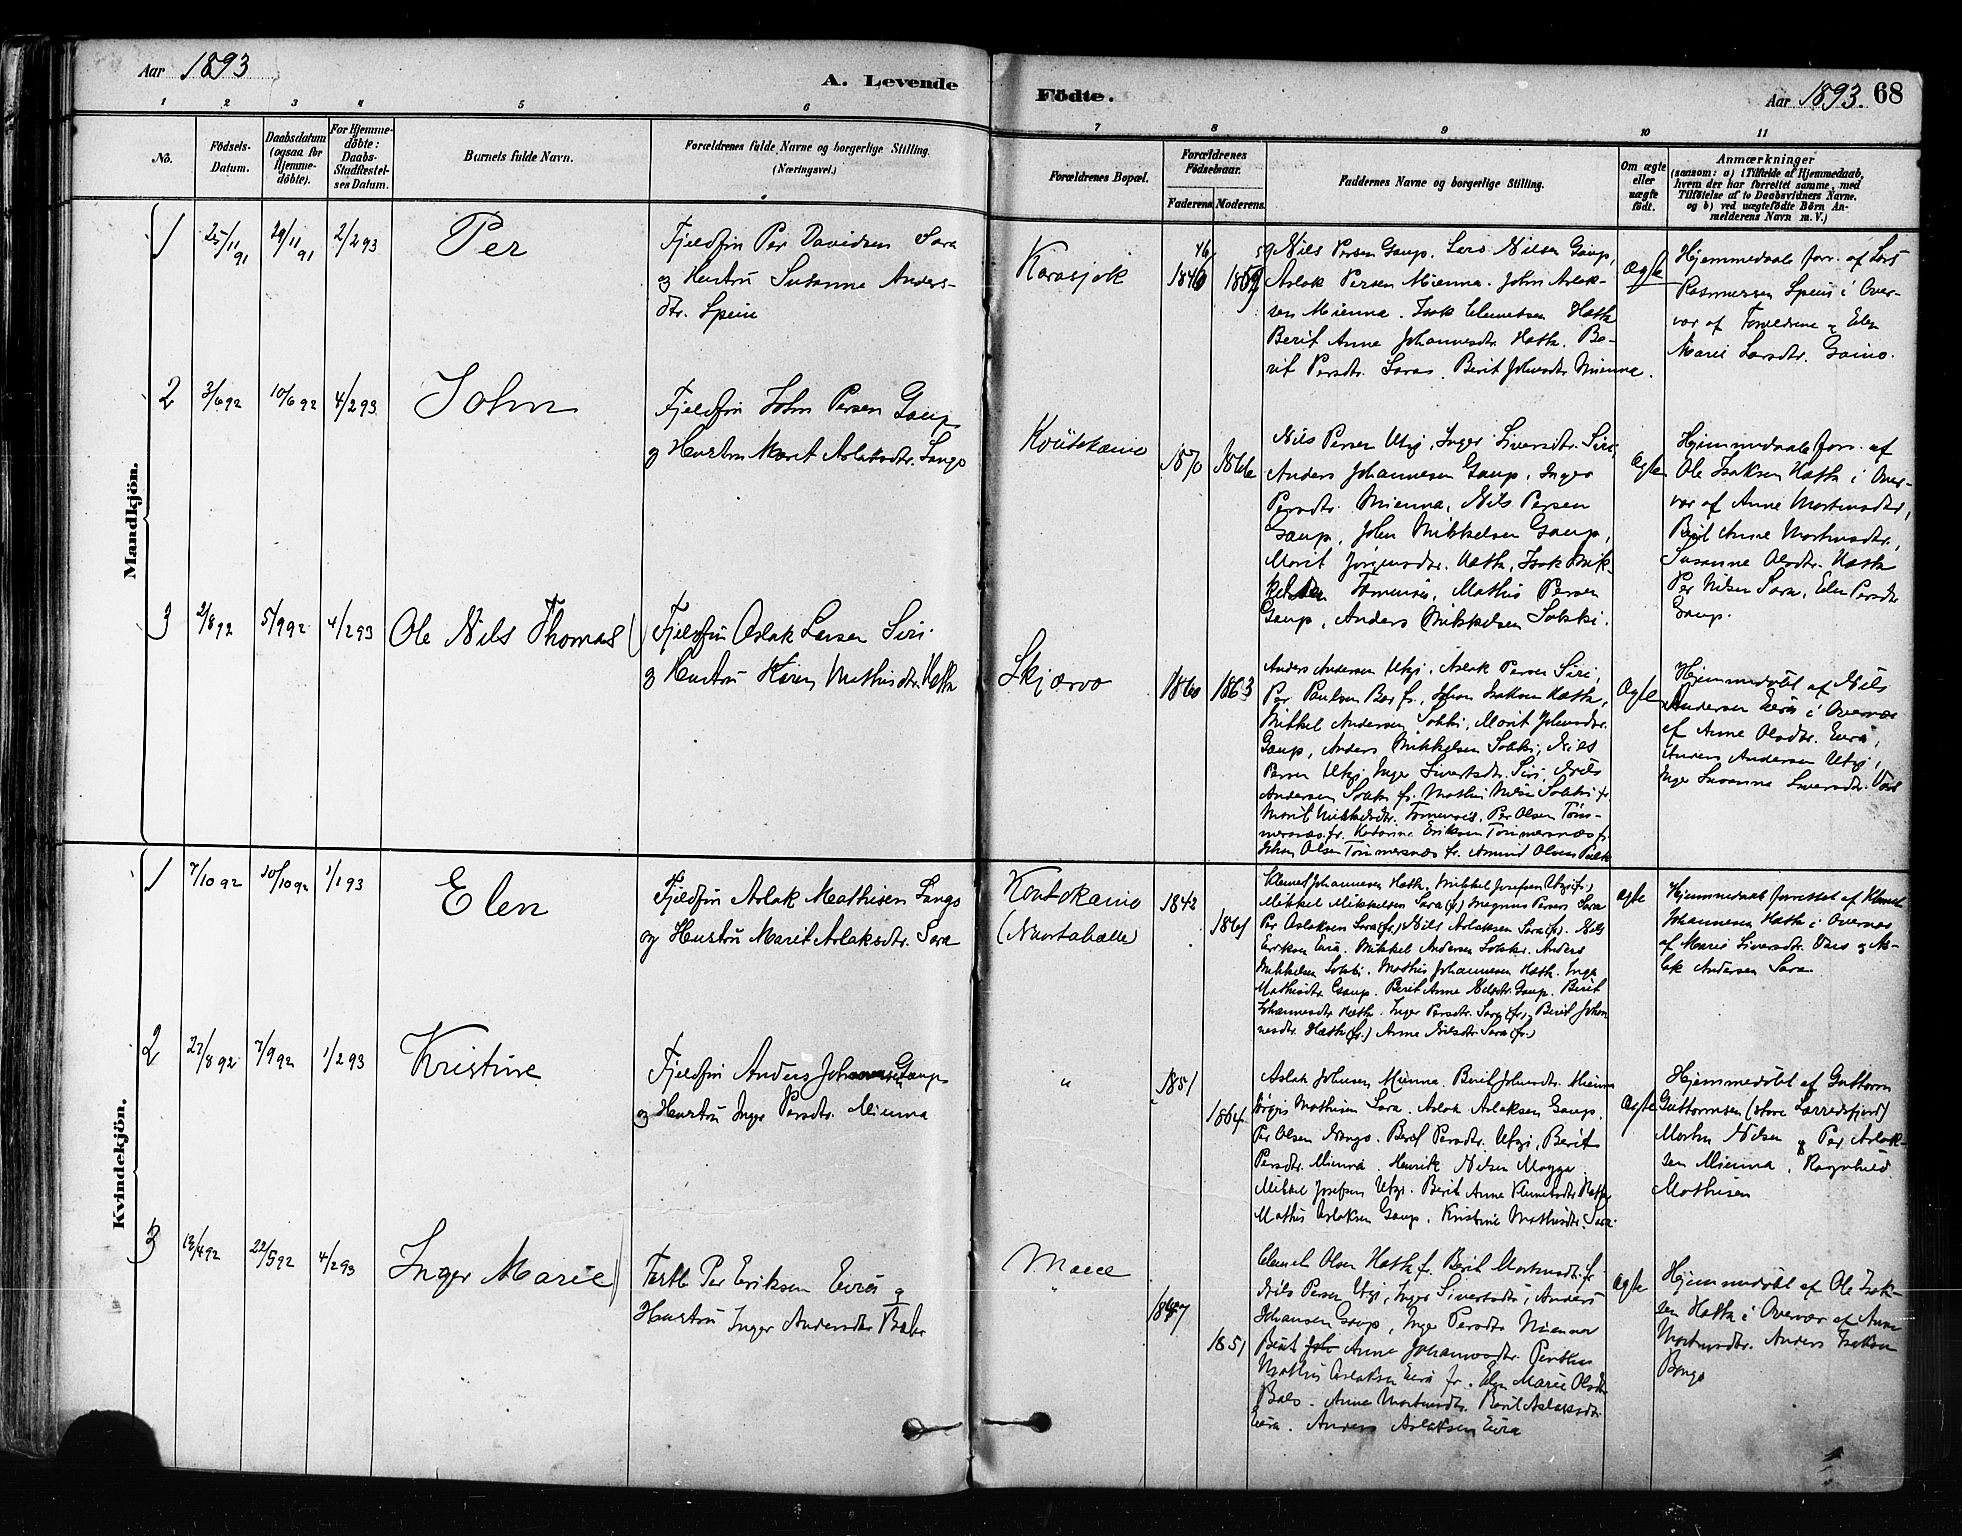 Aar 1893
A. Levende
Födte.
Aar 1893. 68
1 2 3 4 5 6 7 8 9 10 11
No.
Födsels-
Datum.
Daabsdatum
(ogsaa for
Hjemme-
döbte).
For Hjemme-
döbte:
Daabs-
Stadfæstel-
ses Datum.
Barnets fulde Navn.
Forældrenes fulde Navne og borgerlige Stilling.
(Næringsvei.)
Forældrenes Bopæl.
Forældrenes
Födselsaar.
Faderens. Moderens.
Faddernes Navne og borgerlige Stilling.
Om ægte
eller
uægte
födt.
Anmærkninger
(saasom: a) i Tilfælde af Hjemmedaab,
hvem der har forrettet samme, med
Tilföielse af to Daabsvidners Navne.
og b) ved uægtefödte Börn An-
melderens Navn m. V.)
Mandkjön.
1 25/11 91 29/11 91 2/2 93 Per
Fjeldfin Per Davidsen Sara
og Hustru Susanne Anders-
dtr. Spein
Karasjok
46 59
1846 1859
Nils Persen Gaup. Nilsen Gaup,
Aslak Persen Mienna. John Aslak-
sen Mienna. Isak Clemetsen Hætta
Berit Anne Johannesdtr. Hætta. Be-
rit Persdtr. Saras. Berit Johnsdtr. Mienna.
Ægte
Hjemmedaab forr. af Lars
Rasmussen Spein i Over-
vær af Forældrene og Elen
Marie Larsdtr. Gaino.
2 3/6 92 10/6 92 4/2 93 John
Fjeldfin John Persen Gaup
og Hustru Marit Aslaksdtr. Sango
Koutokeino
1870 1866
Nils Persen Utzi, Inger Siversdtr. Siri,
Anders Johannesen Gaup, Inger
Persdtr. Mienna, Nils Persen
Gaup, John Mikkelsen Gaup,
Marit Jörgensdtr. Hætta, Isak Mik-
kelsen Tornensis, Mathis Persen
Gaup, Anders Mikkelsen Sokki.
Ægte
Hjemmedaab forr. af
Ole Isaksen Hætta i Over-
vær af Anne Mortensdtr,
Berit Anne Mortensdtr,
Susanne Olsdtr. Hætta
Per Nilsen Sara, Elen Persdtr
Gaup.
3 2/8 92 5/9 92 4/2 93 Ole Nils Thomas
Fjeldfin Aslak Larsen Siri.
og Hustru Karen Mathisdtr. Hætta
Skjærvö
1860 1863
Anders Andersen Utzi, Aslak Persen Siri,
Per Paulsen Bær fr., Johan Isaksen Hætta,
Mikkel Andersen Sokki, Marit Johnsdtr.
Gaup, Anders Mikkelsen Sokki, Nils
Persen Utzi, Inger Sivertsdtr. Siri, Nils
Andersen Sokki fr. Mathis Nilsen Sokki fr
Marit Mikkelsdtr. Tornensis. Per Olsen Töm-
mernæs. fr. Katarina Eriksen Tömmernæs fr.
Johan Olsen Tömmernæs fr. Amund Olsen
Ægte
Hjemmedöbt af Nils
Andersen Eira i Overvær
af Anne Olsdtr. Eira,
Anders Andersen Utzi,
Inger Susanna Siversdtr.
Kvindekjön.
1 7/10 92 10/10 92 1/1 93 Elen
Fjeldfin Aslak Mathisen Sango
og Hustru Marit Aslaksdtr. Sara
Koutokeino
1842
1861
Klemet Johannesen Hætta. Mikkel Josefsen Utzi (fr)
Mikkel Mikkelsen Sara (fr) Magnus Persen Sara
Per Aslaksen Sara (fr) Nils Aslaksen Sara (fr). Nils
Eriksen Eira. Mikkel Andersen Sokki. Anders
Mikkelsen Sokki. Mathis Johannesen Hætta. Inga
Mathisdtr. Gaup. Berit Anne Nilsdtr. Gaup. Berit
Johannesdtr Hætta. Inger Persdtr. Sara (fr.) Berit Johan
nesdtr. Hætta (fr.) Anne Nilsdtr. Sara (fr.)
Ægte
Hjemmedaab forrettet af Klemet
Johannesen Hætta i Overvær
af Maria Siversdtr. og As-
lak Andersen Sara
2 27/8 92 7/9 92 1/2 93 Kristine
Fjeldfin Anders Johannesen Gaup
og Hustru Inger Persdtr. Mienna
"
1851
1864.
Aslak Johnsen Mienna. Berit Johnsdtr. Mienna
Mathisen Sara. Aslak Aslaksen Gaup.
Per Olsen Nango. Berit Persdtr. Utzi, Berit
Persdtr. Mienna. Henrik Nilsen Magga.
Mikkel Josefsen Utzi. Berit Anne Klemetsdtr Hætta
Mathis Aslaksen Gaup. Kristine Mathisdtr. Sara.
Ægte
Hjemmedöbt af Guttorm
Guttormsen (store Lærredsfjord)
Morten Nilsen og Per Aslak-
sen Mienna, Ragnhild
Mathisen
3 13/4 92 22/5 92 4/2 93 Inger Marie
Fastb Per Eriksen Eira og
Hustru Inger Andersdtr Bals
Maece
"
1847
1851
Clemet Olsen Hætta f. Berit Mortensdtr. fr
Nils Persen Utzi, Inger Sivertsdtr, Anders
Johansen Gaup, Inger Persdtr Mienna
Berit Joh Anne Johannesdtr
Mathis Aslaksen Eira fr. Elen Marie Olsdtr
Bals. Anne Mortensdtr. Berit Aslaksdtr.
Eira. Anders Aslaksen Eira
Ægte
Hjemmedöbt af Ole Isak-
sen Hætta i Overvær af Anne
Mortensdtr. Anders Isaksen
Bongo